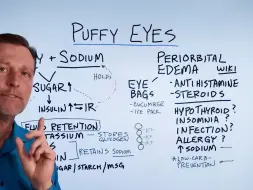 PUFFY EYES
Y + SODIUM
HOLDS
SUGAR ↑
INSULIN ↑ ⇆ IR
FLUID RETENTION
TASSIUM → STORES
RETAINS SODIUM
SUGAR/STARCH/MSG
EYE BAGS
- CUCUMBER
- ICE PACK
PERIORBITAL
EDEMA WIKI
- ANTIHISTAMINE
- STEROIDS
HYPOTHYROID?
INSOMNIA?
INFECTION?
ALLERGY?
↑ SODIUM
LOW-CARB
PREVENTION